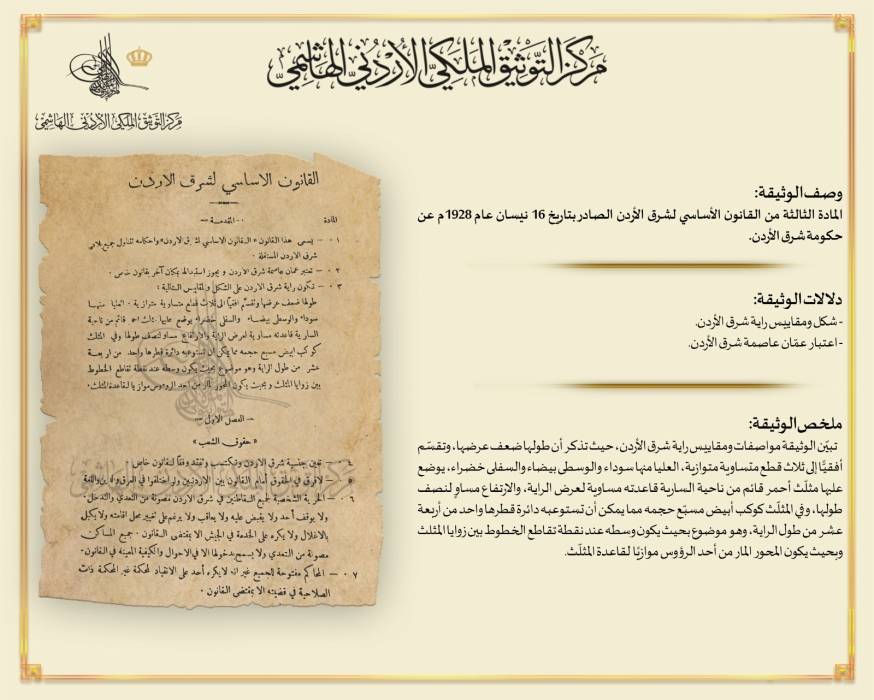 مركز التوثيق الملكي الأردني الهاشمي
مركز التوثيق الملكي الأردني الهاشمي
وصف الوثيقة:
المادة الثالثة من القانون الأساسي لشرق الأردن الصادر بتاريخ 16 نيسان عام 1928م عن
حكومة شرق الأردن.
دلالات الوثيقة:
- شكل ومقاييس راية شرق الأردن.
- اعتبار عمّان عاصمة شرق الأردن.
ملخص الوثيقة:
تبيّن الوثيقة مواصفات ومقاييس راية شرق الأردن، حيث تذكر أن طولها ضعف عرضها، وتقسّم
أفقيًّا إلى ثلاث قطع متساوية متوازية، العليا منها سوداء والوسطى بيضاء والسفلى خضراء، يوضع
عليها مثلّث أحمر قائم من ناحية السارية قاعدته مساوية لعرض الراية، والارتفاع مساوٍ لنصف
طولها، وفي المثلّث كوكب أبيض مسبّع حجمه مما يمكن أن تستوعبه دائرة قطرها واحد من أربعة
عشر من طول الراية، وهو موضوع بحيث يكون وسطه عند نقطة تقاطع الخطوط بين زوايا المثلث
وبحيث يكون المحور المار من أحد الرؤوس موازيًا لقاعدة المثلّث.
القانون الاساسي لشرق الاردن
المادة
المقدمة
٠١ – يسمى هذا القانون «القانون الاساسي لشرق الاردن» واحكامه تتناول جميع بلاد
شرق الاردن المستقلة .
٠٢ – تعتبر عمان عاصمة شرق الاردن و يجوز استبدالها بمكان آخر بقانون خاص .
٠٣ – تكون راية شرق الاردن على الشكل والمقاييس التالية :
طولها ضعف عرضها وتقسم افقياً الى ثلاث قطع متساوية متوازية . العليا منها
سوداء والوسطى بيضاء والسفلى خضراء يوضع عليها مثلث احمر قائم من ناحية
السارية قاعدته مساوية لعرض الراية والارتفاع مساو لنصف طولها وفي المثلث
كوكب ابيض مسبع حجمه مما يمكن أن تستوعبه دائرة قطرها واحد من اربعة
عشر من طول الراية وهو موضوع بحيث يكون وسطه عند نقطة تقاطع الخطوط
بين زوايا المثلث وبحيث يكون المحور المار من احد الرؤوس موازيا لقاعدة المثلث.
– الفصل الاول –
« حقوق الشعب »
– تعين جنسية شرق الاردن وتكتسب وتفقد وفقاً لقانون خاص
– لا فرق في الحقوق أمام القانون بين الاردنيين ولو اختلفوا في العرق والدين واللغة
٠٦ – الحرية الشخصية لجميع القاطنين في شرق الاردن مصونة من التعدي والتدخل .
ولا يوقف أحد ولا يقبض عليه ولا يعاقب ولا يرغم على تغيير محل اقامته ولا يكبل
بالاغلال ولا يكره على الخدمة في الجيش الا بمقتضى القانون . جميع المساكن
مصونة من التعدي ولا يسمح بدخولها الا في الاحوال والكيفية المعينة في القانون.
٠٧ – المحاكم مفتوحة للجميع غير انه لا يكره أحد على الانقياد لمحكمة غير المحكمة ذات
الصلاحية في قضيته الا بمقتضى القانون .